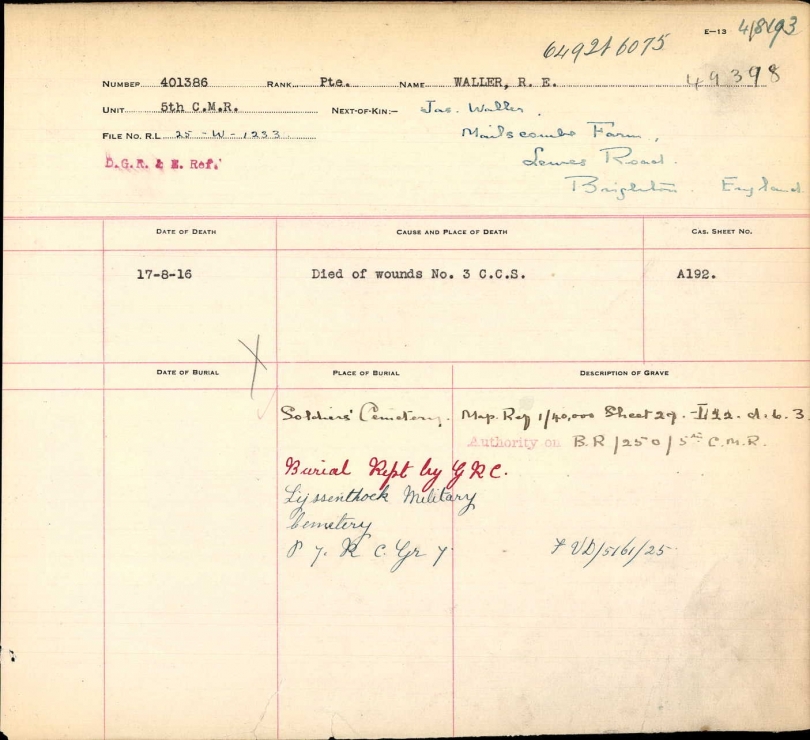 E-13 4/8/93
649216075
NUMBER 401386 RANK Pte. NAME WALLER, R. E. 49398
UNIT 5th C.M.R. NEXT-OF-KIN:- Jas. Waller,
FILE NO. R.L 25-W-1233 Mailscombe Farm,
D.G.R. & E. Ref. Lewes Road.
Brighton. England
DATE OF DEATH CAUSE AND PLACE OF DEATH CAS. SHEET NO.
17-8-16 Died of wounds No. 3 C.C.S. A192.
DATE OF BURIAL PLACE OF BURIAL DESCRIPTION OF GRAVE
Soldiers' Cemetery. Map. Ref 1/40,000 Sheet 29. d. 6. 3.
Authority on B.R/250/5th C.M.R.
Burial Rept by GRC.
Lijssenthock Military
Cemetery
P 7. R C. Gr 7. VD/5161/25